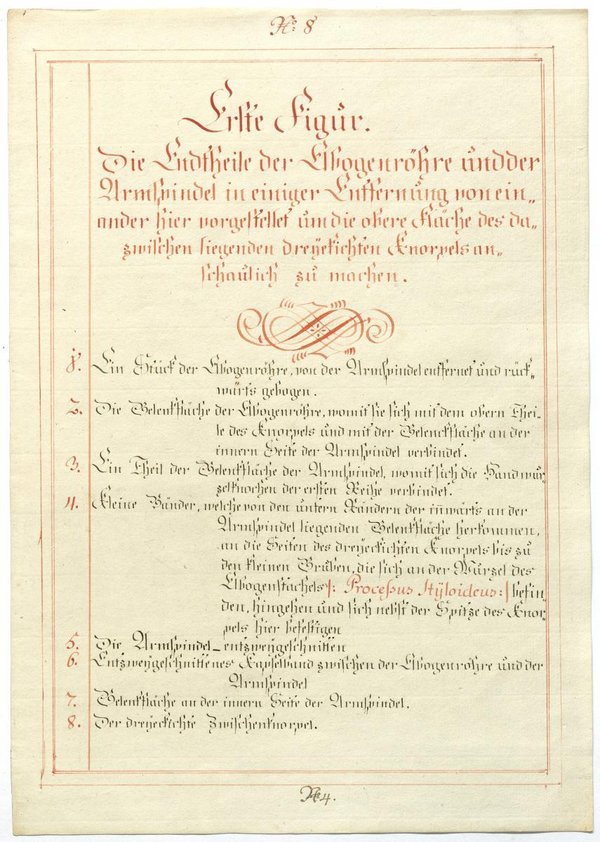 N: 8
Erste Figur.
Die Endtheile der Elbogenröhre und der
Armspindel in einiger Entfernung von ein„
ander hier vorgestellet um die obere Fläche des da„
zwischen liegenden dreyekichten Knorpels an„
schaulich zu machen.
1. Ein Stück der Elbogenröhre, von der Armspindel entfernet und rück„
wärts gebogen.
2. Die Gelenkfläche der Elbogenröhre, womit sie sich mit dem obern Thei„
le des Knorpels und mit der Gelenckfläche an der
innern Seite der Armspindel verbindet.
3. Ein Theil der Gelenkfläche der Armspindel, womit sich die Handwur„
zelknochen der ersten Reihe verbindet.
4. Kleine Bänder, welche von den untern Rändern der inwärts an der
Armspindel liegenden Gelenkfläche herkommen,
an die Seiten des dreyeckichten Knorpels bis zu
den kleinen Gruben, die sich an der Wurzel des
Elbogenstachels |: Proceßus stÿloideus :| befin
den, hingehen und sich nebst der Spitze des Knor„
pels hier befestigen
5. Die Armspindel entzweygeschnitten
6. Entzweygeschnittenes Kapselband zwischen der Elbogenröhre und der
Armspindel
7. Gelenkfläche an der innern Seite der Armspindel.
8. Der dreyeckichte Zwischenknorpel.
N 4.